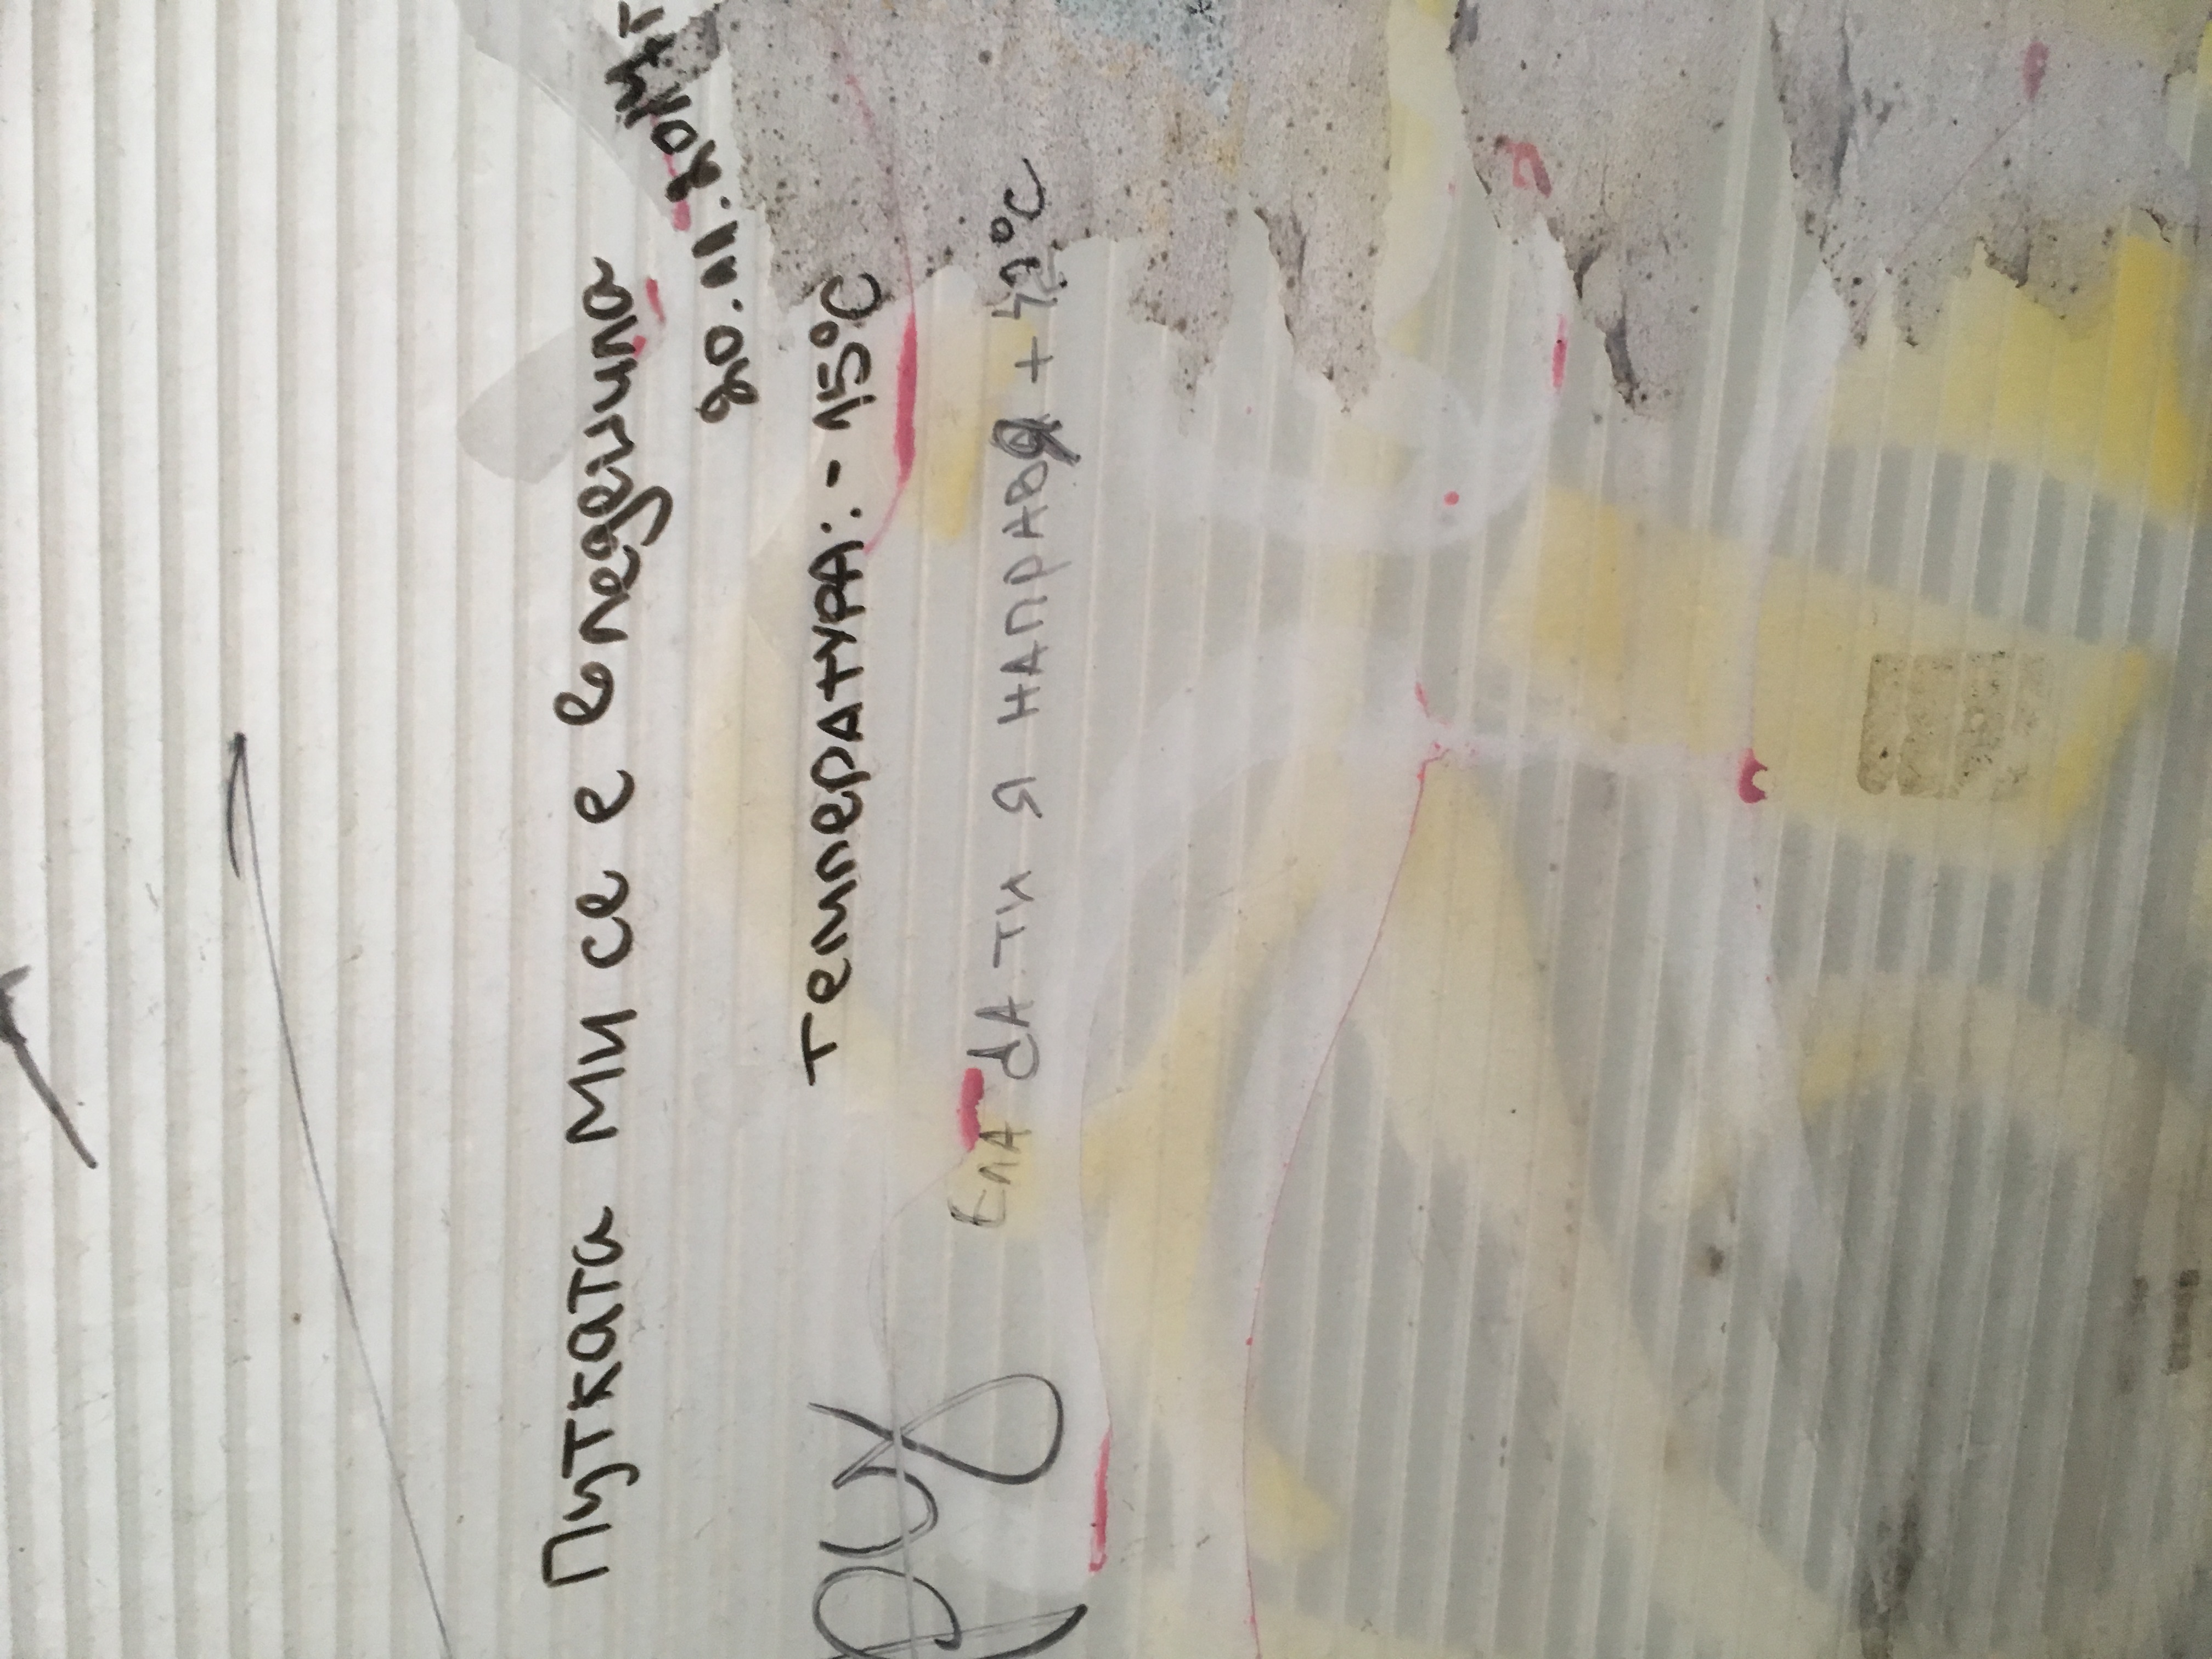 Путката ми се е вледенила
20.11.2017г
Температура: - 15°C
ру
Ела да ти я направя + 42°C